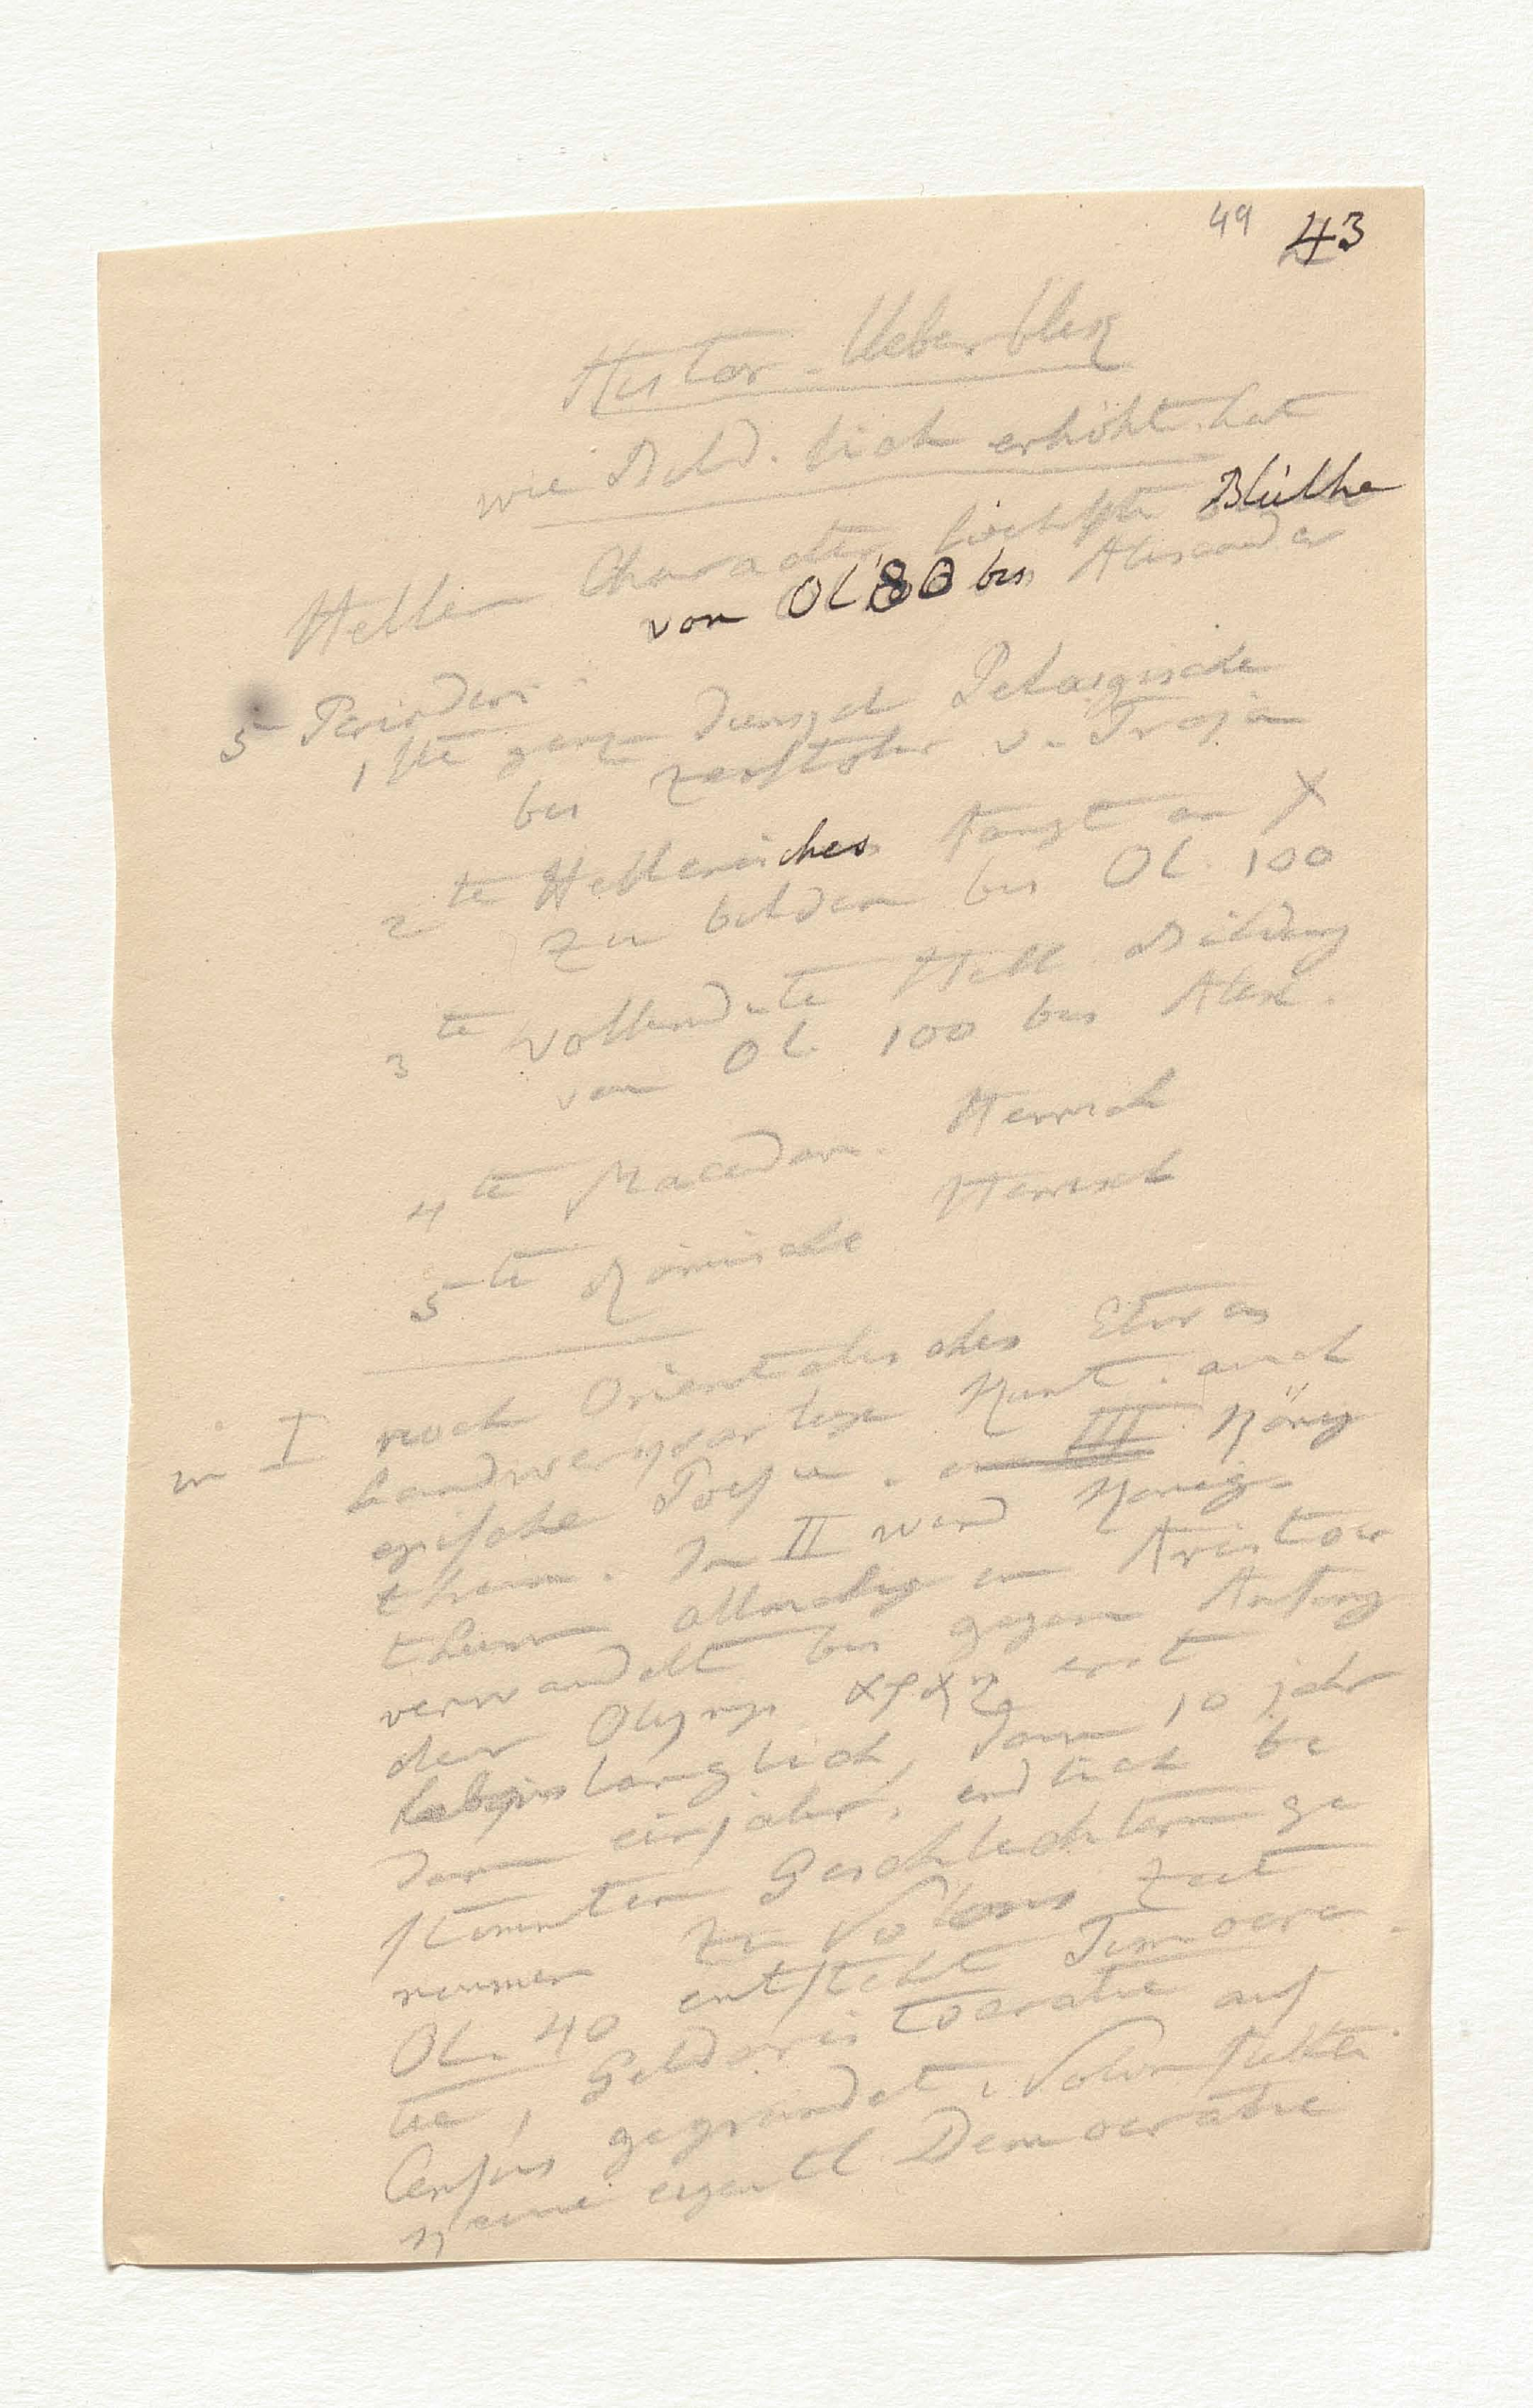 49 43
Histor. Ueberblik
wie Bild. sich erhöht hat
Hellen Character höchste Blüthe
von Ol 80 bis Alexander
5 Perioden
1ste ganz dunkel Pelasgische
bis Zerstöhr v. Troja
2te Hellenisches fangt an X
zu bilden bis Ol. 100
3te Vollendete Hell Bildung
von Ol. 100 bis Alex.
4te Macedon. Herrsch
5te Römische Herrsch
in I noch Orientalisches Etwas
handwerksartige Kunst. auch
epische Poesie. III König
thum. In II wird König
thum allmalig in Aristocr
verwandelt bis gegen Anfang
der Olymp erst
lebenslänglich, dann 10 jahr
dann einjahr, endlich be
stimmten Geschlechtern ge
nommen zu Solons Zeit
Ol. 40 entsteht Timocra
tie, Geldaristocratie auf
Census gegründet, Solon stiftete
keine eigentl. Democratie